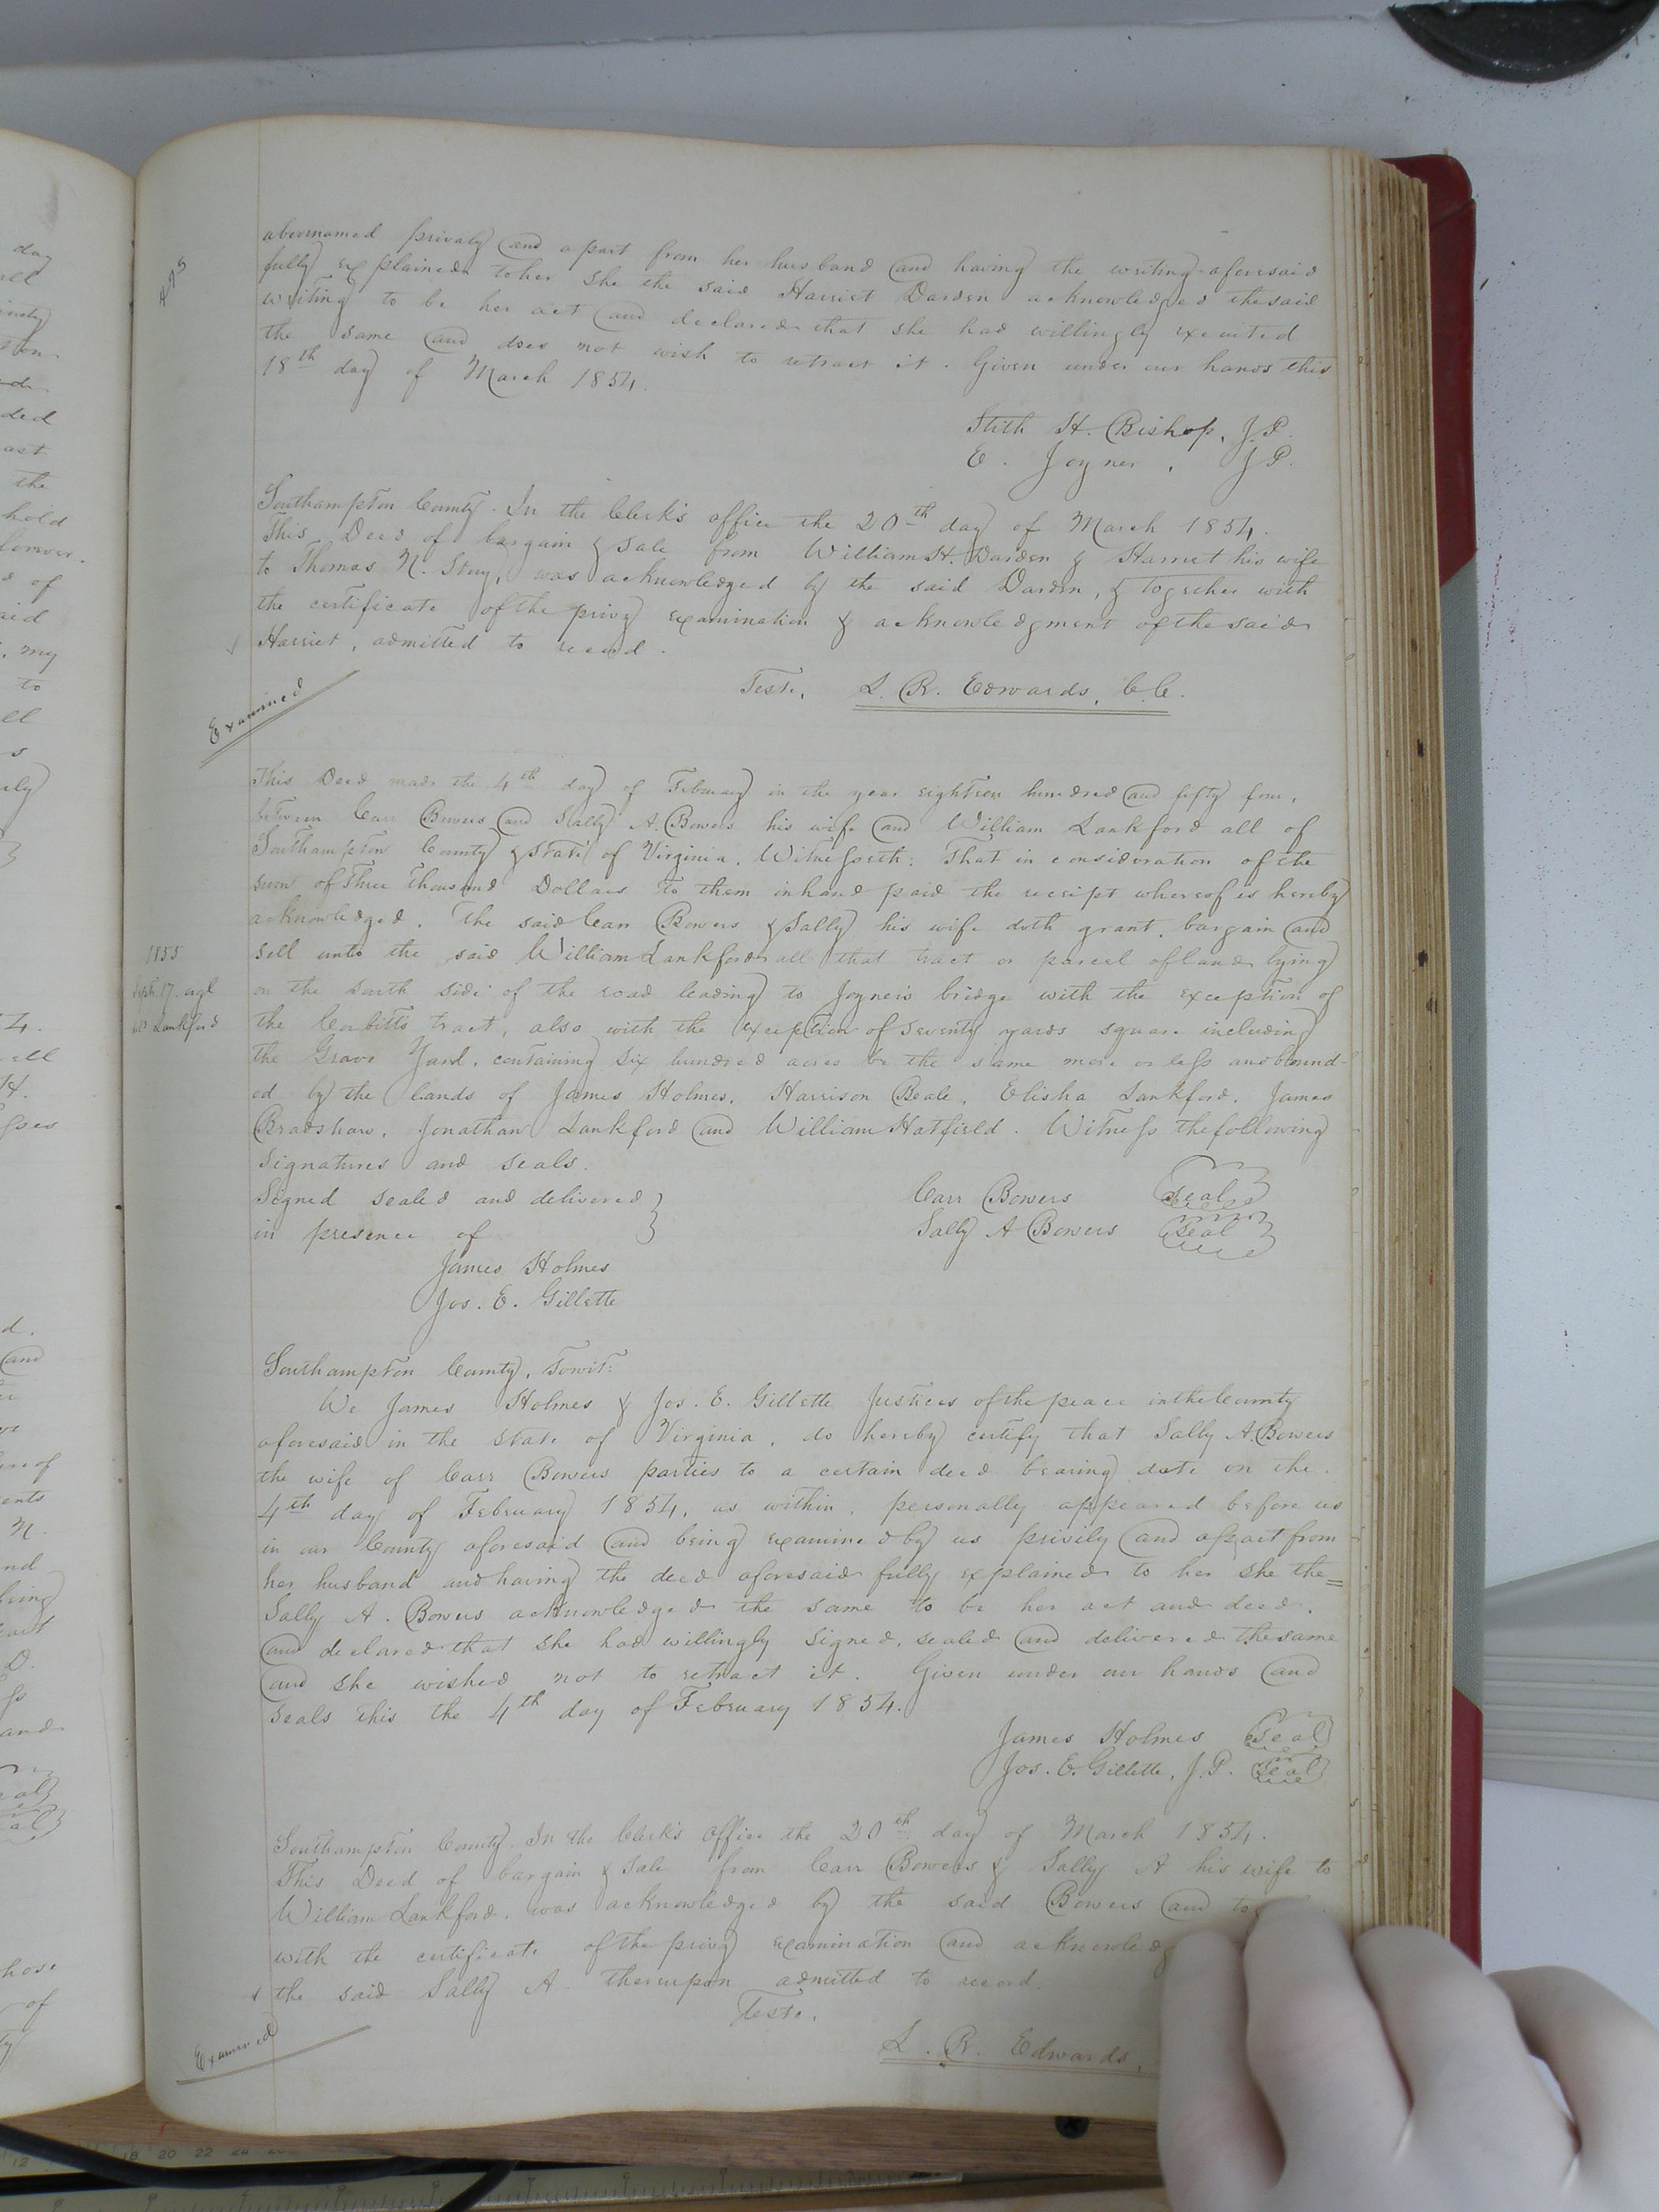 abovenamed privaly and apart from her husband and having the writing aforesaid
fully explained to her she the said Harriet Darden acknowledged the said
writing to be her act and declared that she had willingly executed
the same and does not wish to retract it. Given under our hands this
18th day of March 1854.
Stith H. Bishop, J.P.
E. Joyner, J.P.
Southampton County. In the Clerk's office the 20th day of March 1854.
This Deed of bargain & sale from William H. Darden & Harriet his wife
to Thomas N. was acknowledged by the said Darden, & together with
the certificate of the privy examination & acknowledgment of the said
Harriet, admitted to record.
Teste, L. R. Edwards, C.C.
Examined
This Deed made the 4th day of February in the year eighteen hundred and fifty four,
between Carr Bowers and Sally A. Bowers his wife and William Lankford all of
Southampton County & State of Virginia, Witnesseth: That in consideration of the
sum of Three Thousand Dollars to them in hand paid the receipt whereof is hereby
acknowledged. The said Carr Bowers & Sally his wife doth grant, bargain and
sell unto the said William Lankford all that tract or parcel of land lying
on the side of the road leading to Joyner's bridge with the exception of
the Corbitts tract, also with the exception of seventy yards square including
the Grave Yard, containing six hundred acres be the same more or less and bound-
ed by the lands of James Holmes, Harrison Beale, Elisha Lankford, James
Bradshaw, Jonathan Lankford and William Hatfield. Witness the following
signatures and seals.
1855
Septr. 17.
Wm Lankford
Signed sealed and delivered
in presence of
James Holmes
Jos. E. Gillette
Carr Bowers Seal
Sally A Bowers Seal
Southampton County, Towit:
We James Holmes & Jos. E. Gillette Justices of the peace in the County
aforesaid in the State of Virginia, do hereby certify that Sally A Bowers
the wife of Carr Bowers parties to a certain deed bearing date on the
4th day of February 1854, as within, personally appeared before us
in our County aforesaid and being examined by us privily and apart from
her husband and having the deed aforesaid fully explained to her she the=
Sally A. Bowers acknowledged the same to be her act and deed,
and declared that she had willingly signed, sealed and delivered the same
and she wished not to retract it. Given under our hands and
seals this the 4th day of February 1854.
James Holmes Seal
Jos. E. Gillette, J.P. Seal
Southampton County. In the Clerk's Office the 20th day of March 1854.
This Deed of bargain & sale from Carr Bowers & Sally A his wife to
William Lankford, was acknowledged by the said Bowers and
with the certificate of the privy examination and
the said Sally A. thereupon admitted to record.
Teste,
L. R. Edwards,
Examined